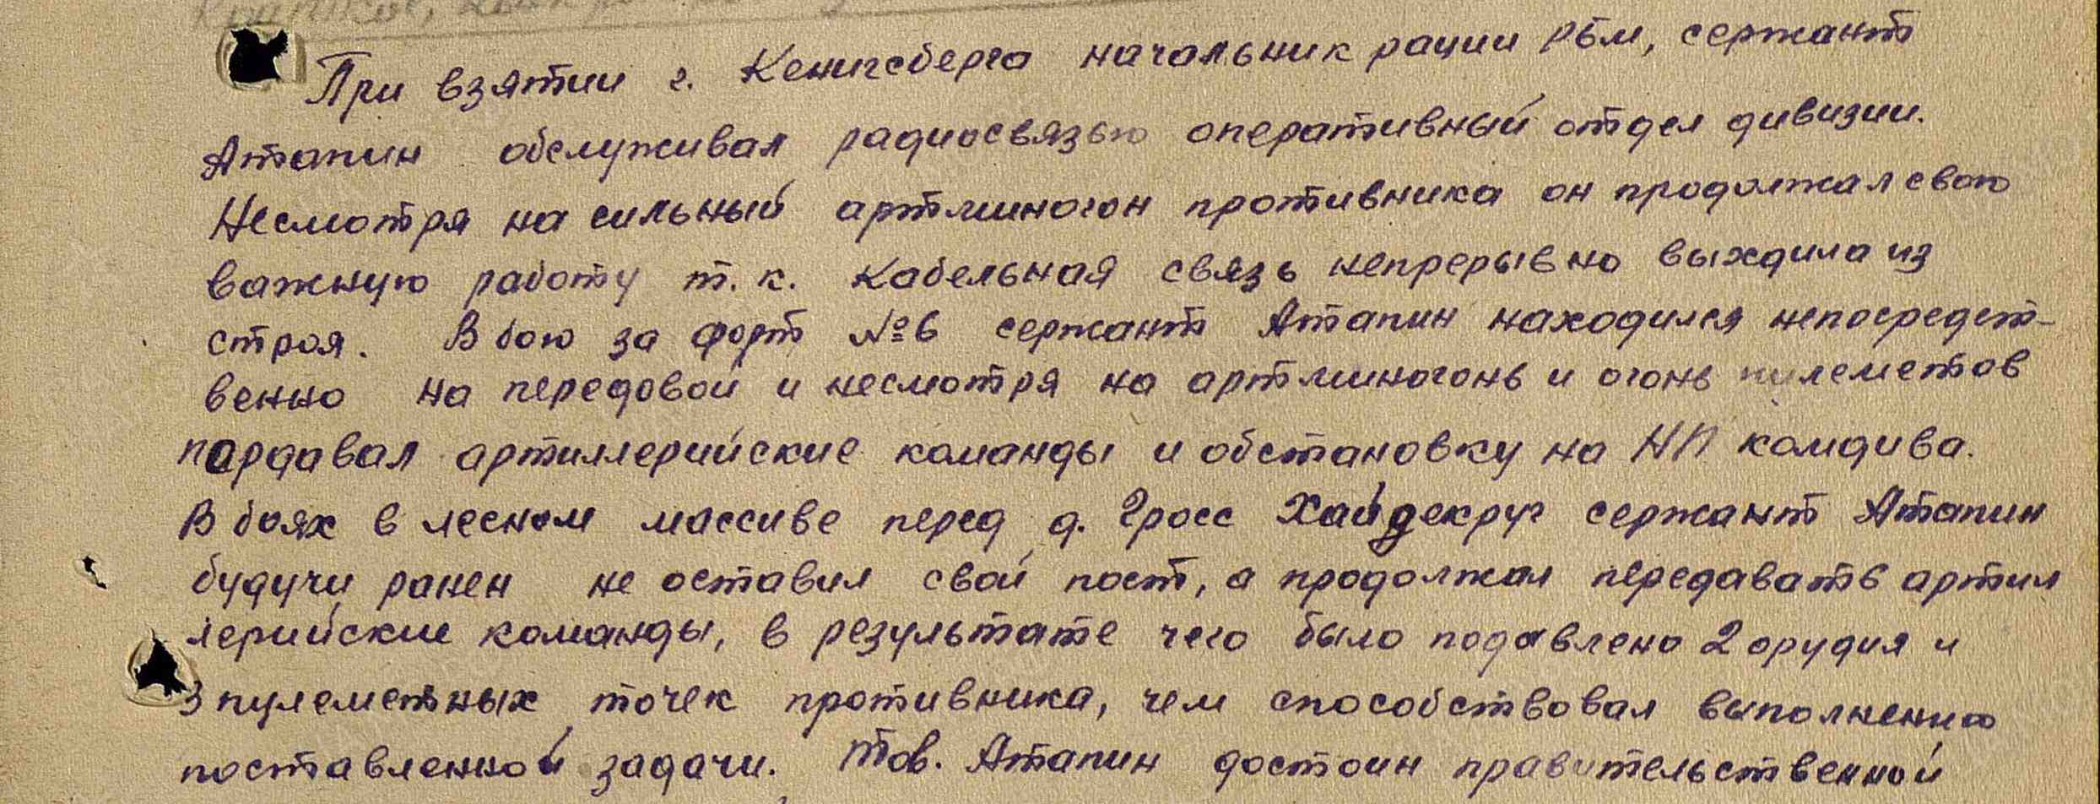 При взятии г. Кенигсберга начальник рации РБМ, сержант
Атапин обслуживал радиосвязью оперативный отдел дивизии.
Несмотря на сильный артминогон противника он продолжал свою
важную работу т.к. кабельная связь непрерывно выходила из
строя. В бою за форт №6 сержант Атапин находился непосредст-
венно на передовой и несмотря на артминогонь и огонь пулеметов
пердавал артиллерийские команды и обстановку на НП комдива.
В боях в лесном массиве перед д. Гросс Хайдекруг сержант Атапин
будучи ранен не оставил свой пост, а продолжал передавать артил
лерийские команды, в результате чего было подавлено 2 орудия и
3 пулеметных точек противника, чем способствовал выполнению
поставленной задачи. Тов. Атапин достоин правительственной